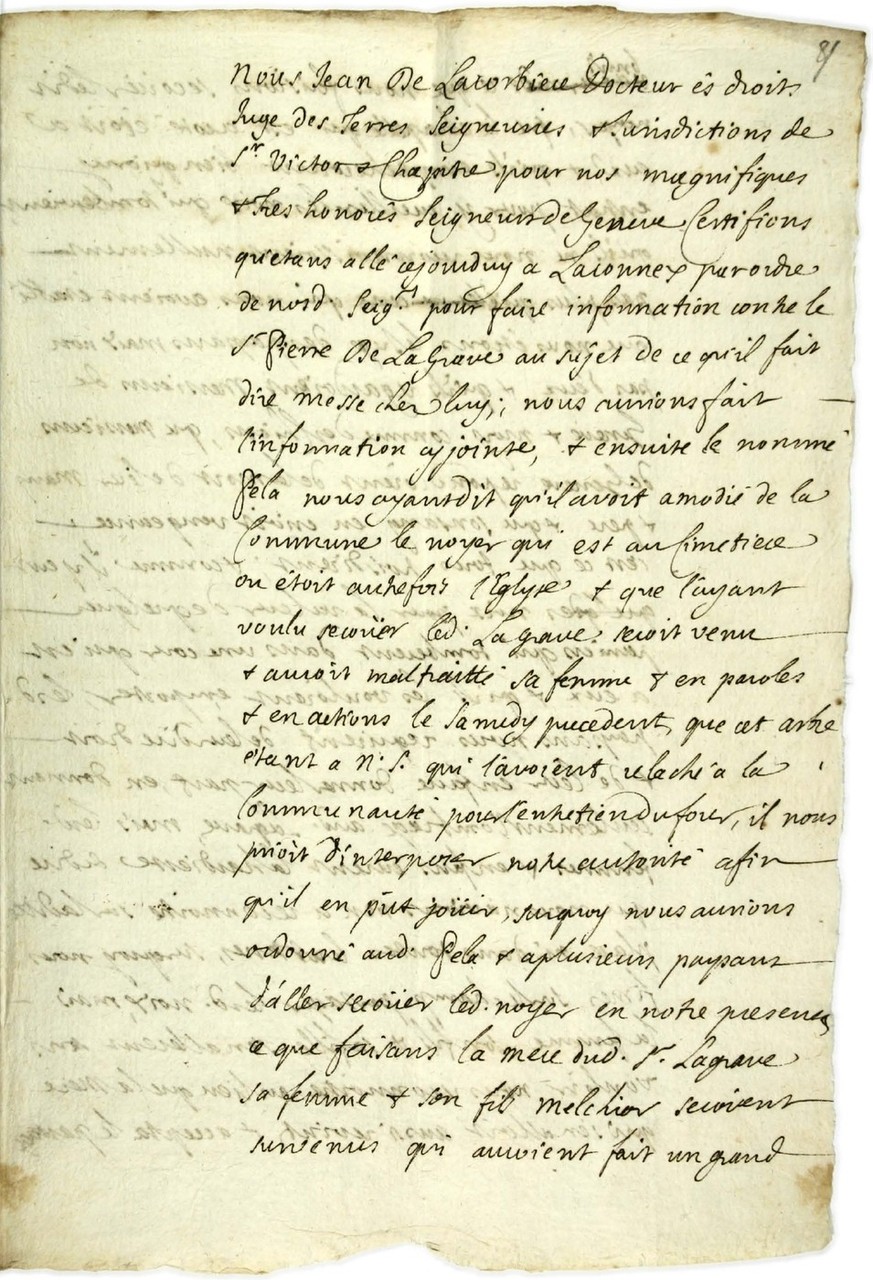 Nous Jean De Lacorbiere Docteur és droits
Juge des Terres Seigneuries & Jurisdictions de
St. Victor & Chapitre pour nos magnifiques
& tres honorés Seigneurs de Geneve Certifions
qu'etans allé ajourduy a Laconnex par ordre
de nosd. Seigrs pour faire information contre le
Sr. Pierre De La Grave au sujet de ce qu'il fait
dire messe chez luy; nous aurions fait
l'information cy jointe, & ensuite le nommé
Pela nous ayant dit qu'il avoit amodié de la
Commune le noyer qui est au Cimetiere
ou étoit autrefois l'Eglyse & que l'ayant
voulu secoüer led. Lagrave seroit venu
& auroit maltraitté sa femme & en paroles
& en actions le samedy precedent, que cet arbre
étant a N. S. qui l'avoient relaché a la
Communauté pour l'entretien du four, il nous
prioit d'interposer notre autorité afin
qu'il en pût joüir, surquoy nous aurions
ordonné aud. Pela & a plusieurs paysans
d'aller secoüer led. noyer en notre presence
ce que faisans la mere dud. Sr. Lagrave
sa femme & son fils melchior seroient
survenus qui auroient fait un grand